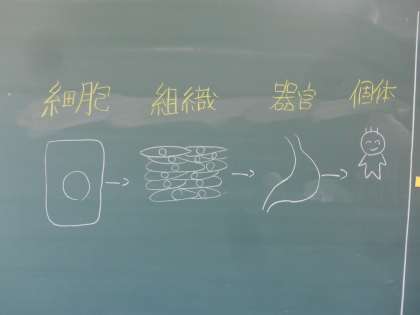 細胞 組織 器官 個体